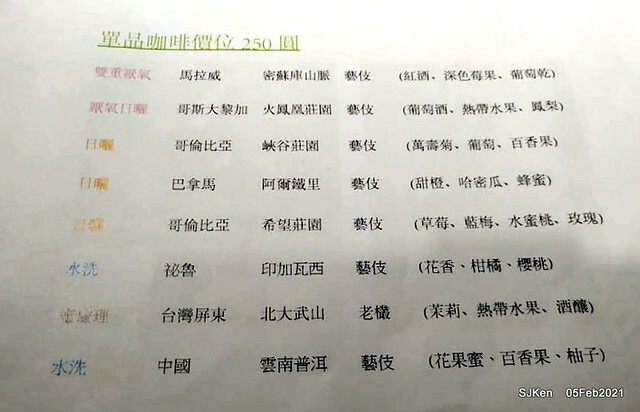 單品咖啡價位 250 圓
雙重厭氧 馬拉威 密蘇庫山脈 藝伎 (紅酒、深色莓果、葡萄乾)
厭氧日曬 哥斯大黎加 火鳳凰莊園 藝伎 (葡萄酒、熱帶水果、鳳梨)
日曬 哥倫比亞 峽谷莊園 藝伎 (萬壽菊、葡萄、百香果)
日曬 巴拿馬 阿爾鐵里 藝伎 (甜橙、哈密瓜、蜂蜜)
日曬 哥倫比亞 希望莊園 藝伎 (草莓、藍梅、水蜜桃、玫瑰)
水洗 祕魯 印加瓦西 藝伎 (花香、柑橘、櫻桃)
處理 台灣屏東 北大武山 老欉 (茉莉、熱帶水果、酒釀)
水洗 中國 雲南普洱 藝伎 (花果蜜、百香果、柚子)
SJKen 05Feb2021